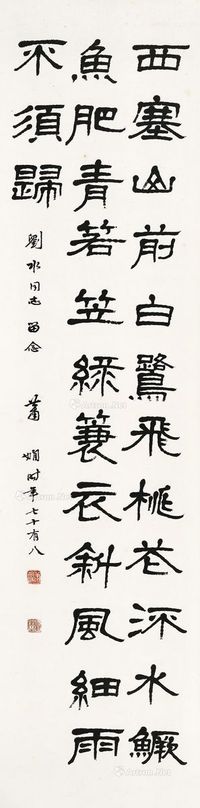 西塞山前白鷺飛桃花流水鱖
魚肥青箬笠綠蓑衣斜風細雨
不須歸
劉冰同志留念
蕭嫻時年七十有八